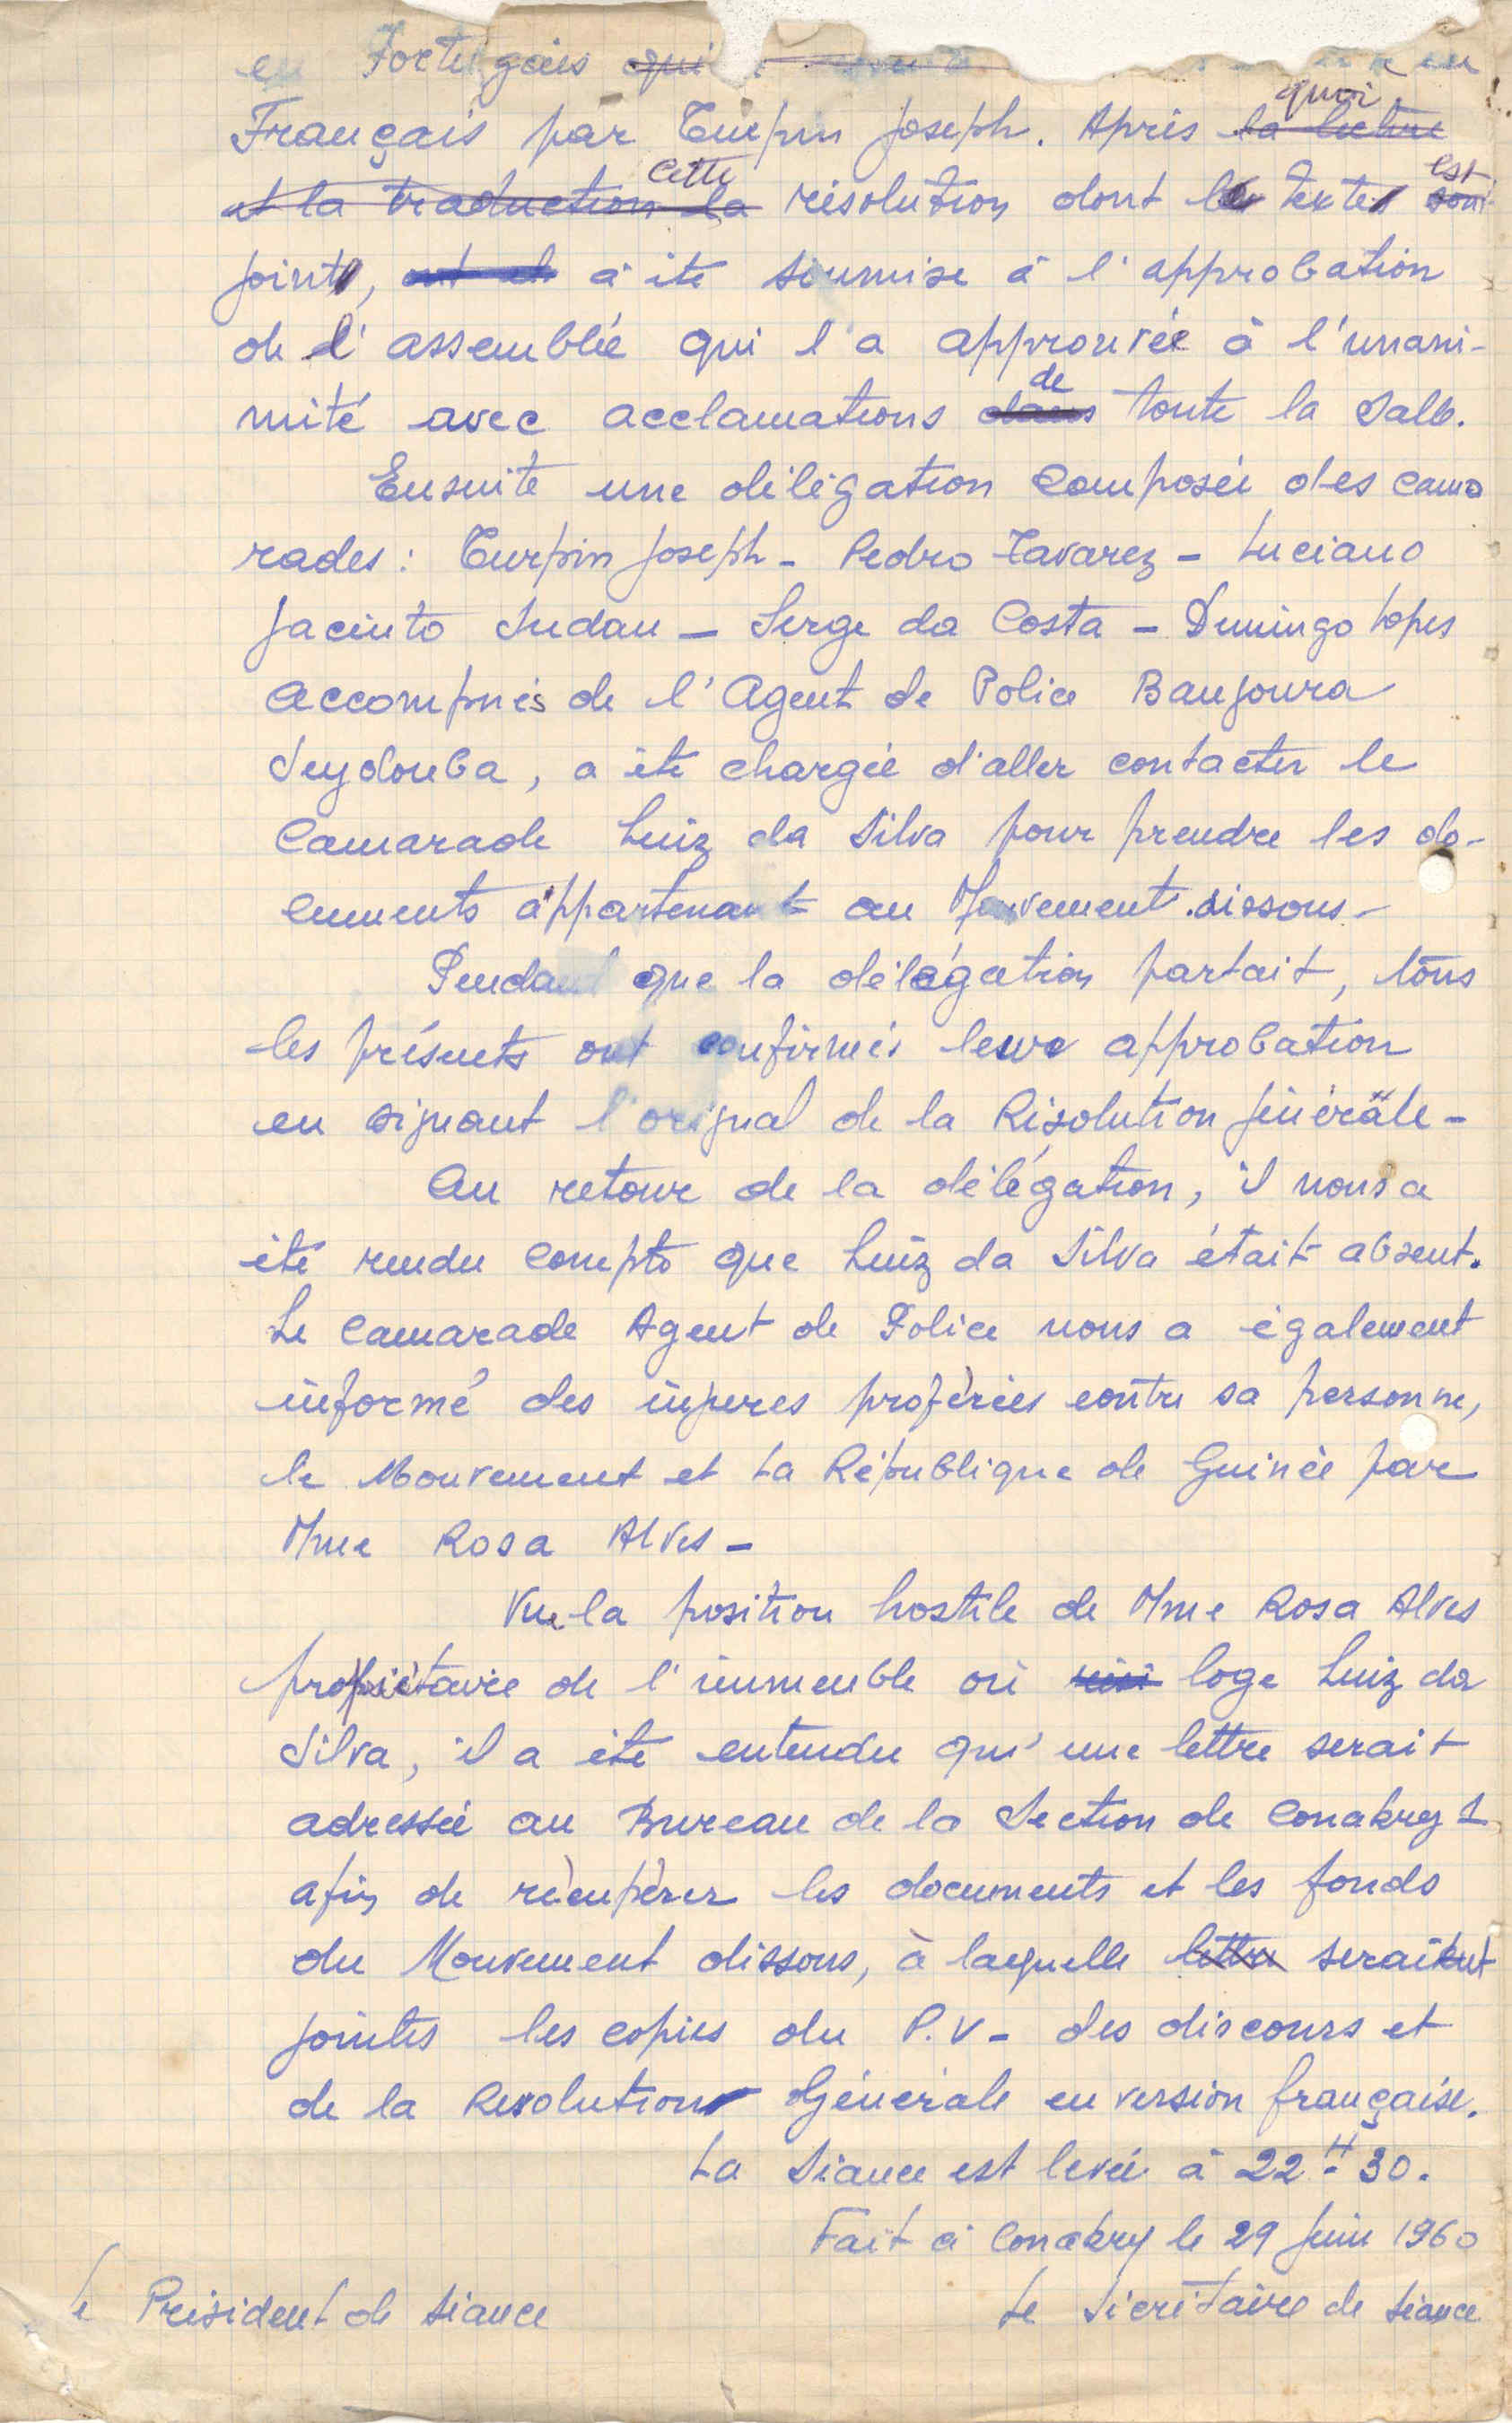 en Portugais qui
quoi
Français par Turpin Joseph. Après la lecture
cette est
et la traduction la résolution dont le texte sont
joint, ont et a été soumise à l'approbation
de l'assemblée qui l'a approuvée à l'unani-
de
mité avec acclamations dans toute la salle.
Ensuite une délégation composée des cama
rades : Turpin Joseph - Pedro Tavarez - Luciano
Jacinto Indau - Serge da Costa - Dumingo Lopes
accompnés de l'Agent de Police Bangoura
Seydouba, a été chargée d'aller contacter le
Camarade Luiz da Silva pour prendre les do-
cuments appartenant au Mouvement dissous -
Pendant que la délégation partait, tous
les présents ont confirmés leur approbation
en signant l'orignal de la Résolution générale -
Au retour de la délégation, il nous a
été rendu compte que Luiz da Silva était absent.
Le Camarade Agent de Police nous a également
informé des injures proférées contre sa personne,
le Mouvement et la République de Guinée par
Mme Rosa Alves -
Vue la position hostile de Mme Rosa Alves
propriétaire de l'immeuble où loge Luiz da
Silva, il a été entendu qu'une lettre serait
adressée au Bureau de la Section de Conakry I
afin de récupérer les documents et les fonds
du Mouvement dissous, à laquelle lettre seraient
jointes les copies du P.V - des discours et
de la Resolution Générale en version française.
La Séance est levée à 22 H 30.
Fait à Conakry le 29 Juin 1960
Le Président de séance
Le Sécrétaire de séance